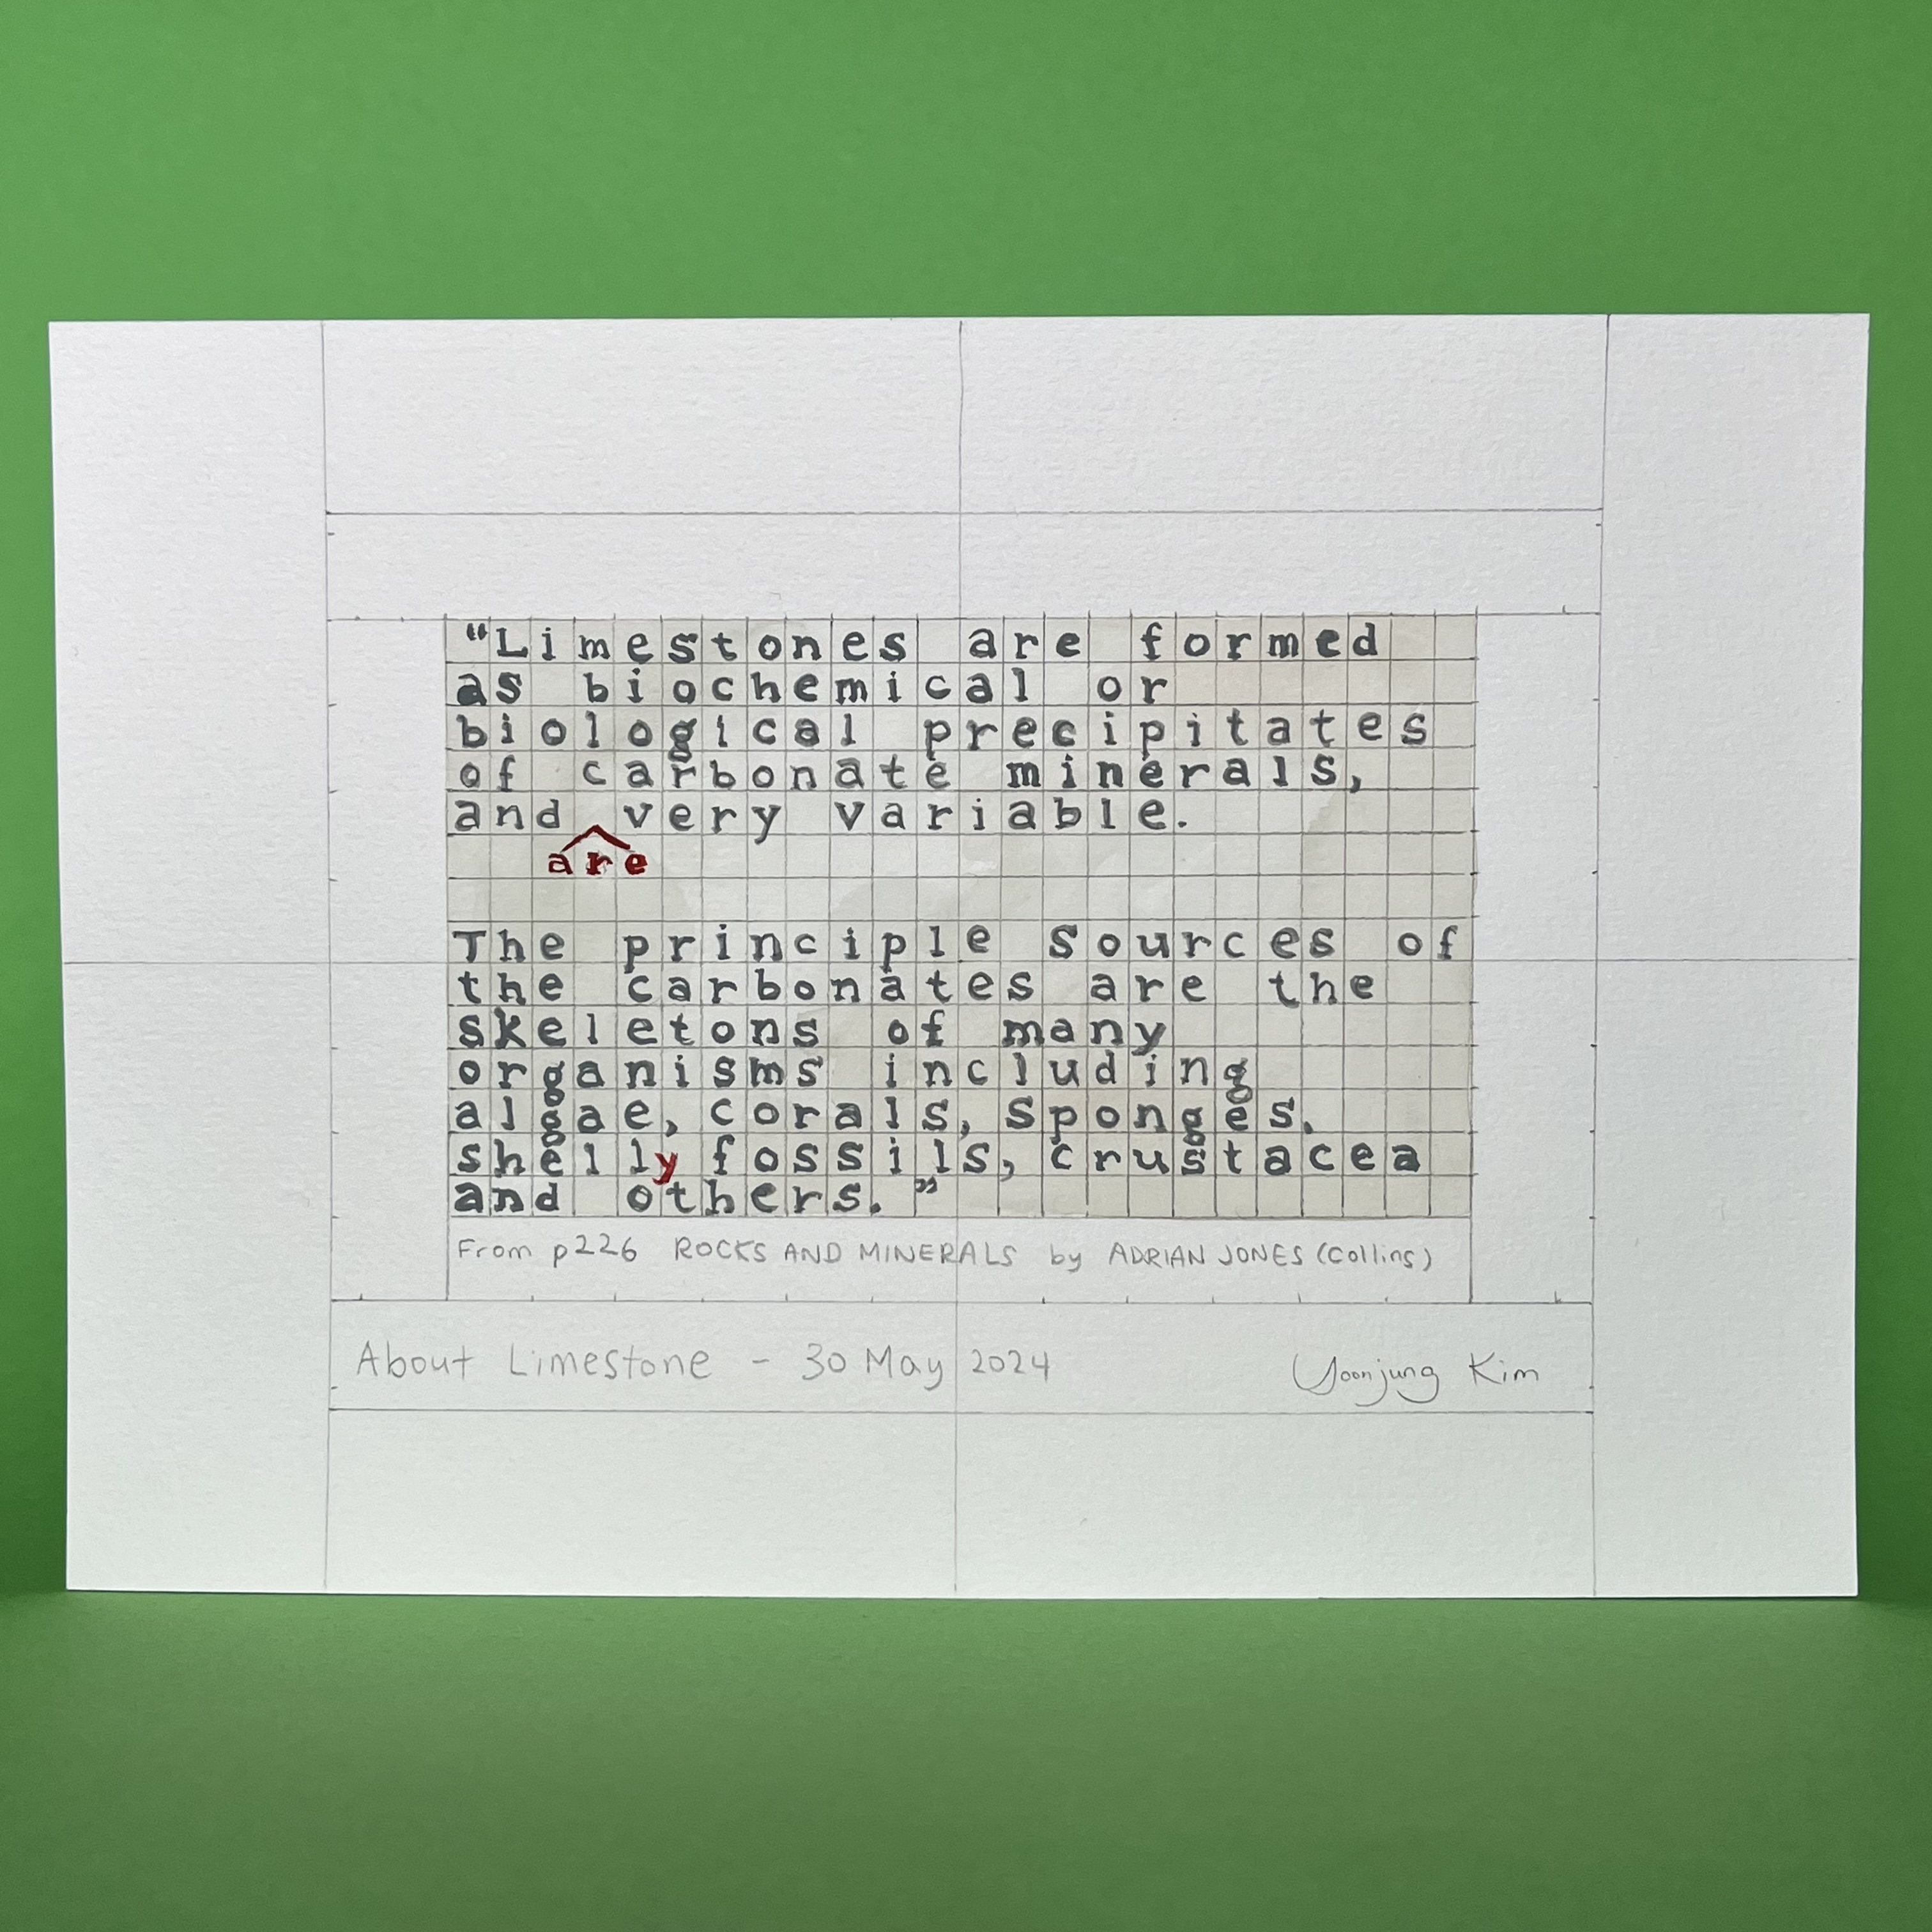 “Limestones are formed
as biochemical or
biological precipitates
of carbonate minerals,
and very variable.
are
The principle sources of
the carbonates are the
skeletons of many
organisms including
algae, corals, sponges.
shelly fossils, crustacea
and others.”
From p226 ROCKS AND MINERALS by ADRIAN JONES (Collins)
About Limestone - 30 May 2024 Yoonjung Kim